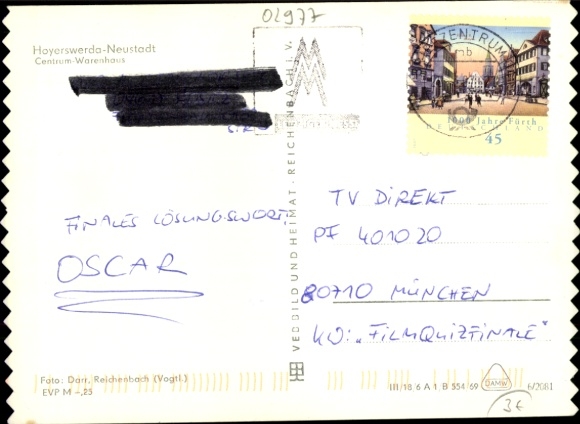 02977
Hoyerswerda-Neustadt
Centrum-Warenhaus
ZENTRUM
mb
1000 Jahre Fürth
DEUTSCHLAND
45
FINALES LÖSUNGSWORT:
OSCAR
VEB BILD UND HEIMAT · REICHENBACH i. V.
TV DIREKT
PF 401020
80710 MÜNCHEN
KW: „FILMQUIZFINALE“
Foto: Darr, Reichenbach (Vogtl.)
EVP M –,25
III/18/6 A 1 B 554/69 DAMW 6/2081
3€